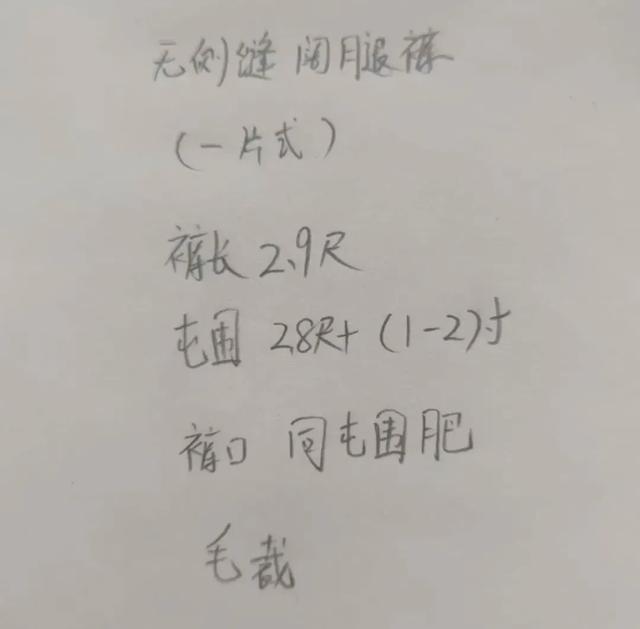 无侧缝 阔腿裤
(一片式)
裤长 2.9尺
屯围 2.8尺+(1-2)寸
裤口 同屯围肥
毛裁